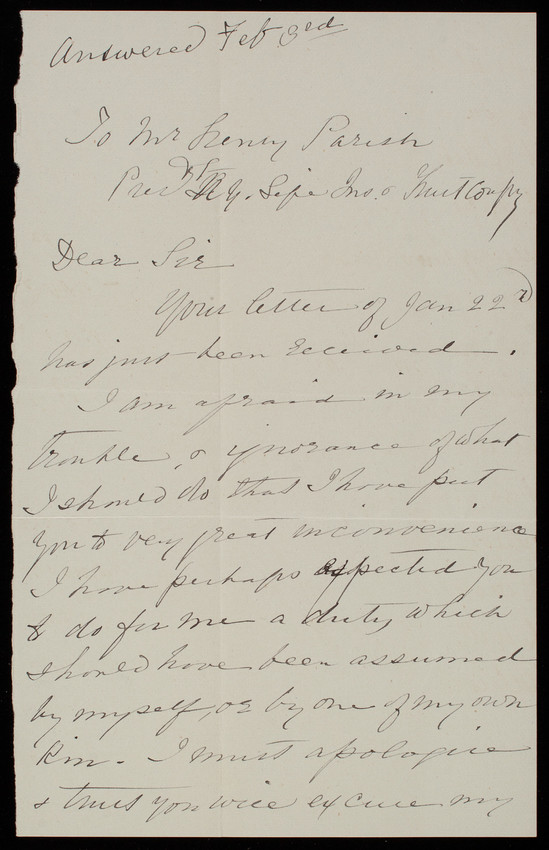 Answered Feb 3rd
To Mr Henry Parish
Presdt N.Y. Life Ins. & Trust Compy
Dear Sir
Your letter of Jan 22d
has just been received.
I am afraid in my
trouble, & ignorance of what
I should do that I have put
you to very great inconvenience
I have perhaps expected you
to do for me a duty which
should have been assumed
by myself, or by one of my own
Kin - I must apologise
& trust you will excuse my